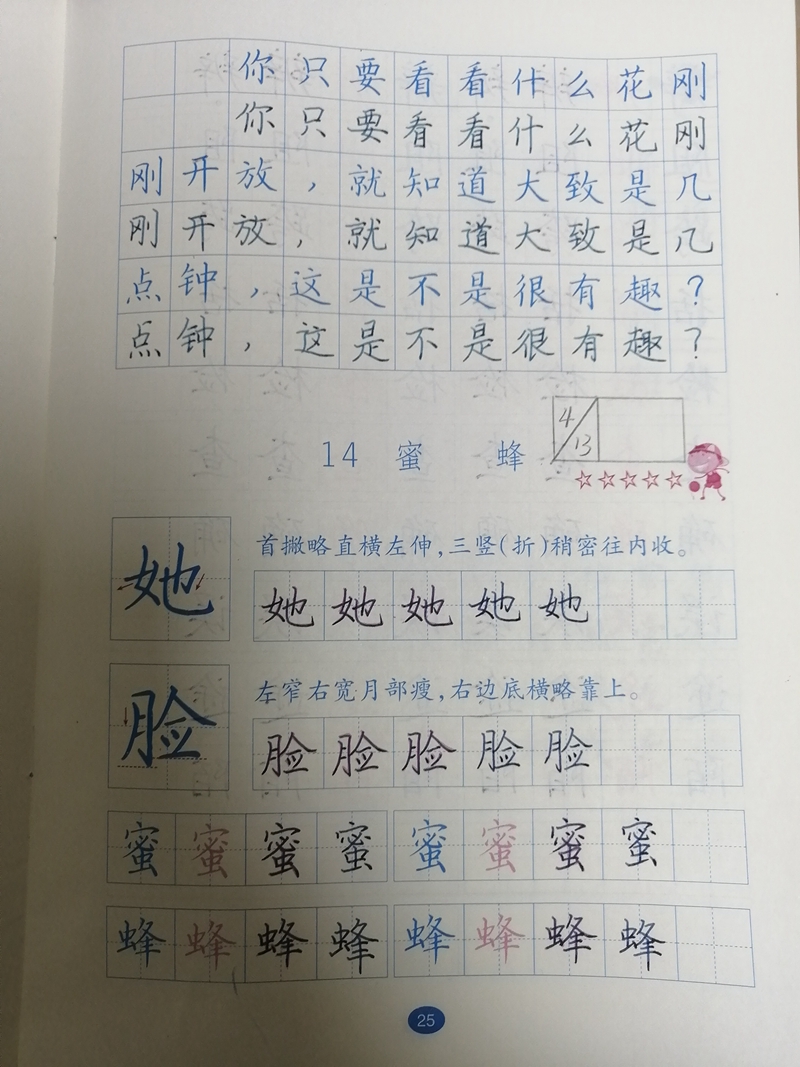 你只要看看什么花刚
你只要看看什么花刚
刚开放，就知道大致是几
刚开放，就知道大致是几
点钟，这是不是很有趣？
点钟，这是不是很有趣？
4/13
14 蜜 蜂
☆☆☆☆☆
她 首撇略直横左伸，三竖(折)稍密往内收。
她她她她她
脸 左窄右宽月部瘦，右边底横略靠上。
脸脸脸脸脸
蜜蜜蜜蜜蜜蜜蜜蜜
蜂蜂蜂蜂蜂蜂蜂蜂
25